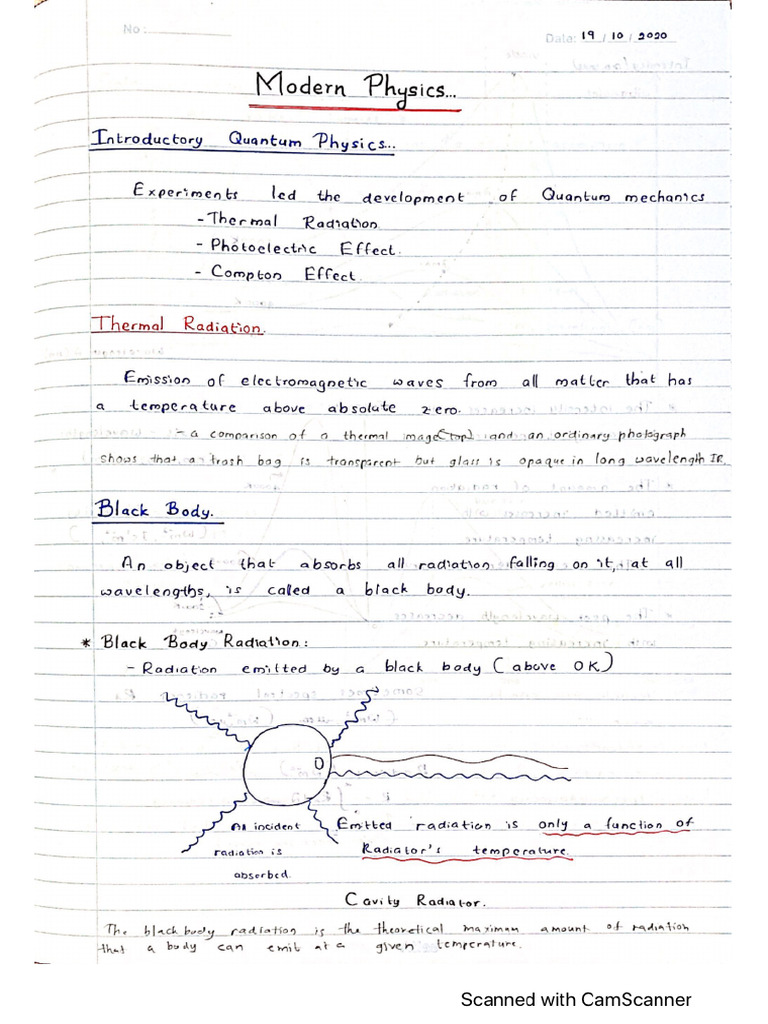 No :
Date: 19 / 10 / 2020
Modern Physics...
Introductory Quantum Physics...
Experiments led the development of Quantum mechanics
- Thermal Radiation
- Photoelectric Effect.
- Compton Effect.
Thermal Radiation.
Emission of electromagnetic waves from all matter that has
a temperature above absolute zero.
- a comparison of a thermal image(top) and an ordinary photograph
shows that a trash bag is transparent but glass is opaque in long wavelength IR.
Black Body.
An object that absorbs all radiation falling on it, at all
wavelengths, is called a black body.
* Black Body Radiation:
- Radiation emitted by a black body (above 0K)
All incident
radiation is
absorbed.
Emitted radiation is only a function of
Radiator's temperature.
Cavity Radiator.
The black body radiation is the theoretical maximam amount of radiation
that a body can emit at a given temperature.
Scanned with CamScanner